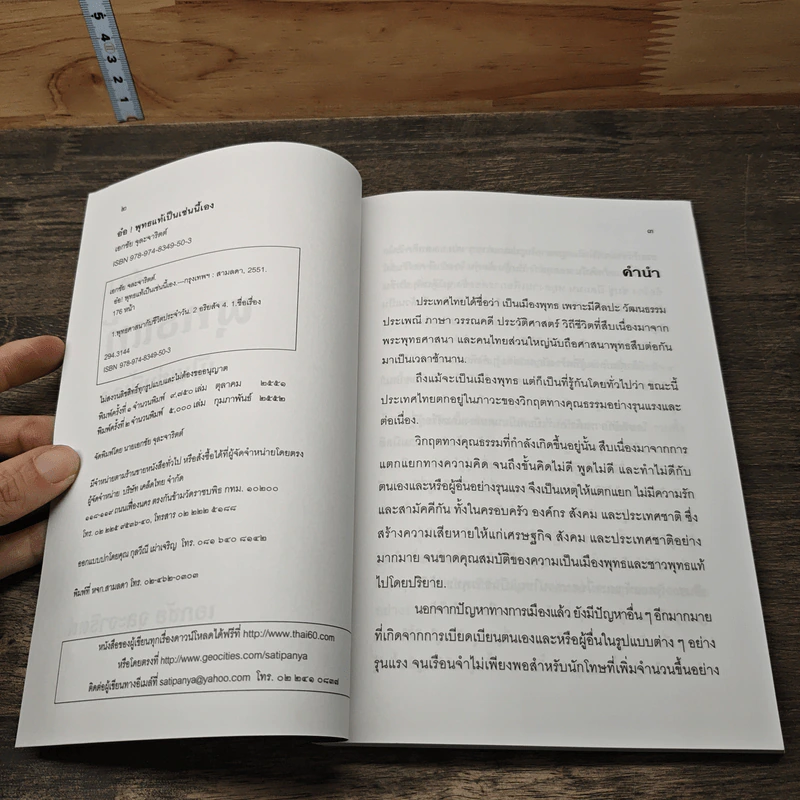 5
4
3
2
1
๒
อ๋อ ! พุทธแท้เป็นเช่นนี้เอง
เอกชัย จุละจาริตต์
ISBN 978-974-8349-50-3
เอกชัย จุละจาริตต์.
อ๋อ! พุทธแท้เป็นเช่นนี้เอง.—กรุงเทพฯ : สามลดา, 2551.
176 หน้า
1.พุทธศาสนากับชีวิตประจำวัน. 2 อริยสัจ 4. 1.ชื่อเรื่อง
294.3144
ISBN 978-974-8349-50-3
ไม่สงวนลิขสิทธิ์ทุกรูปแบบและไม่ต้องขออนุญาต
พิมพ์ครั้งที่ ๑ จำนวนพิมพ์ ๙,๗๕๐ เล่ม ตุลาคม ๒๕๕๑
พิมพ์ครั้งที่ ๒ จำนวนพิมพ์ ๕,๐๐๐ เล่ม กุมภาพันธ์ ๒๕๕๒
จัดพิมพ์โดย นายเอกชัย จุละจาริตต์
มีจำหน่ายตามร้านขายหนังสือทั่วไป หรือสั่งซื้อได้ที่ผู้จัดจำหน่ายโดยตรง
ผู้จัดจำหน่าย บริษัท เคล็ดไทย จำกัด
๑๑๗-๑๑๙ ถนนเฟื่องนคร ตรงกันข้ามวัดราชบพิธ กทม. ๑๐๒๐๐
โทร. ๐๒ ๒๒๕ ๙๕๓๖-๔๐, โทรสาร ๐๒ ๒๒๒ ๕๑๘๘
ออกแบบปกโดยคุณ กุลวิณี เผ่าเจริญ โทร. ๐๘๑ ๖๔๐ ๘๑๔๒
พิมพ์ที่ หจก.สามลดา โทร. ๐๒-๔๖๒-๐๓๐๓
หนังสือของผู้เขียนทุกเรื่องดาวน์โหลดได้ฟรีที่ http://www.thai60.com
หรือโดยตรงที่ http://www.geocities.com/satipanya
ติดต่อผู้เขียนทางอีเมล์ที่ satipanya@yahoo.com โทร. ๐๒ ๒๔๑ ๐๘๓๘
๓
คำนำ
ประเทศไทยได้ชื่อว่า เป็นเมืองพุทธ เพราะมีศิลปะ วัฒนธรรม
ประเพณี ภาษา วรรณคดี ประวัติศาสตร์ วิถีชีวิตที่สืบเนื่องมาจาก
พระพุทธศาสนา และคนไทยส่วนใหญ่นับถือศาสนาพุทธสืบต่อกัน
มาเป็นเวลาช้านาน.
ถึงแม้จะเป็นเมืองพุทธ แต่ก็เป็นที่รู้กันโดยทั่วไปว่า ขณะนี้
ประเทศไทยตกอยู่ในภาวะของวิกฤตทางคุณธรรมอย่างรุนแรงและ
ต่อเนื่อง.
วิกฤตทางคุณธรรมที่กำลังเกิดขึ้นอยู่นั้น สืบเนื่องมาจากการ
แตกแยกทางความคิด จนถึงขั้นคิดไม่ดี พูดไม่ดี และทำไม่ดีกับ
ตนเองและหรือผู้อื่นอย่างรุนแรง จึงเป็นเหตุให้แตกแยก ไม่มีความรัก
และสามัคคีกัน ทั้งในครอบครัว องค์กร สังคม และประเทศชาติ ซึ่ง
สร้างความเสียหายให้แก่เศรษฐกิจ สังคม และประเทศชาติอย่าง
มากมาย จนขาดคุณสมบัติของความเป็นเมืองพุทธและชาวพุทธแท้
ไปโดยปริยาย.
นอกจากปัญหาทางการเมืองแล้ว ยังมีปัญหาอื่น ๆ อีกมากมาย
ที่เกิดจากการเบียดเบียนตนเองและหรือผู้อื่นในรูปแบบต่าง ๆ อย่าง
รุนแรง จนเรือนจำไม่เพียงพอสำหรับนักโทษที่เพิ่มจำนวนขึ้นอย่าง